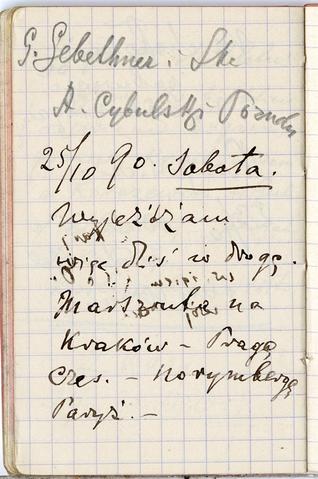 G. Gebethner i Ska
A. Cybulski Poznań
25/10 90. Sobota.
Wyjeżdżam
więc dziś w drogę.
Marszruta na
Kraków – Pragę
Czes. – Norymbergę
Paryż. –